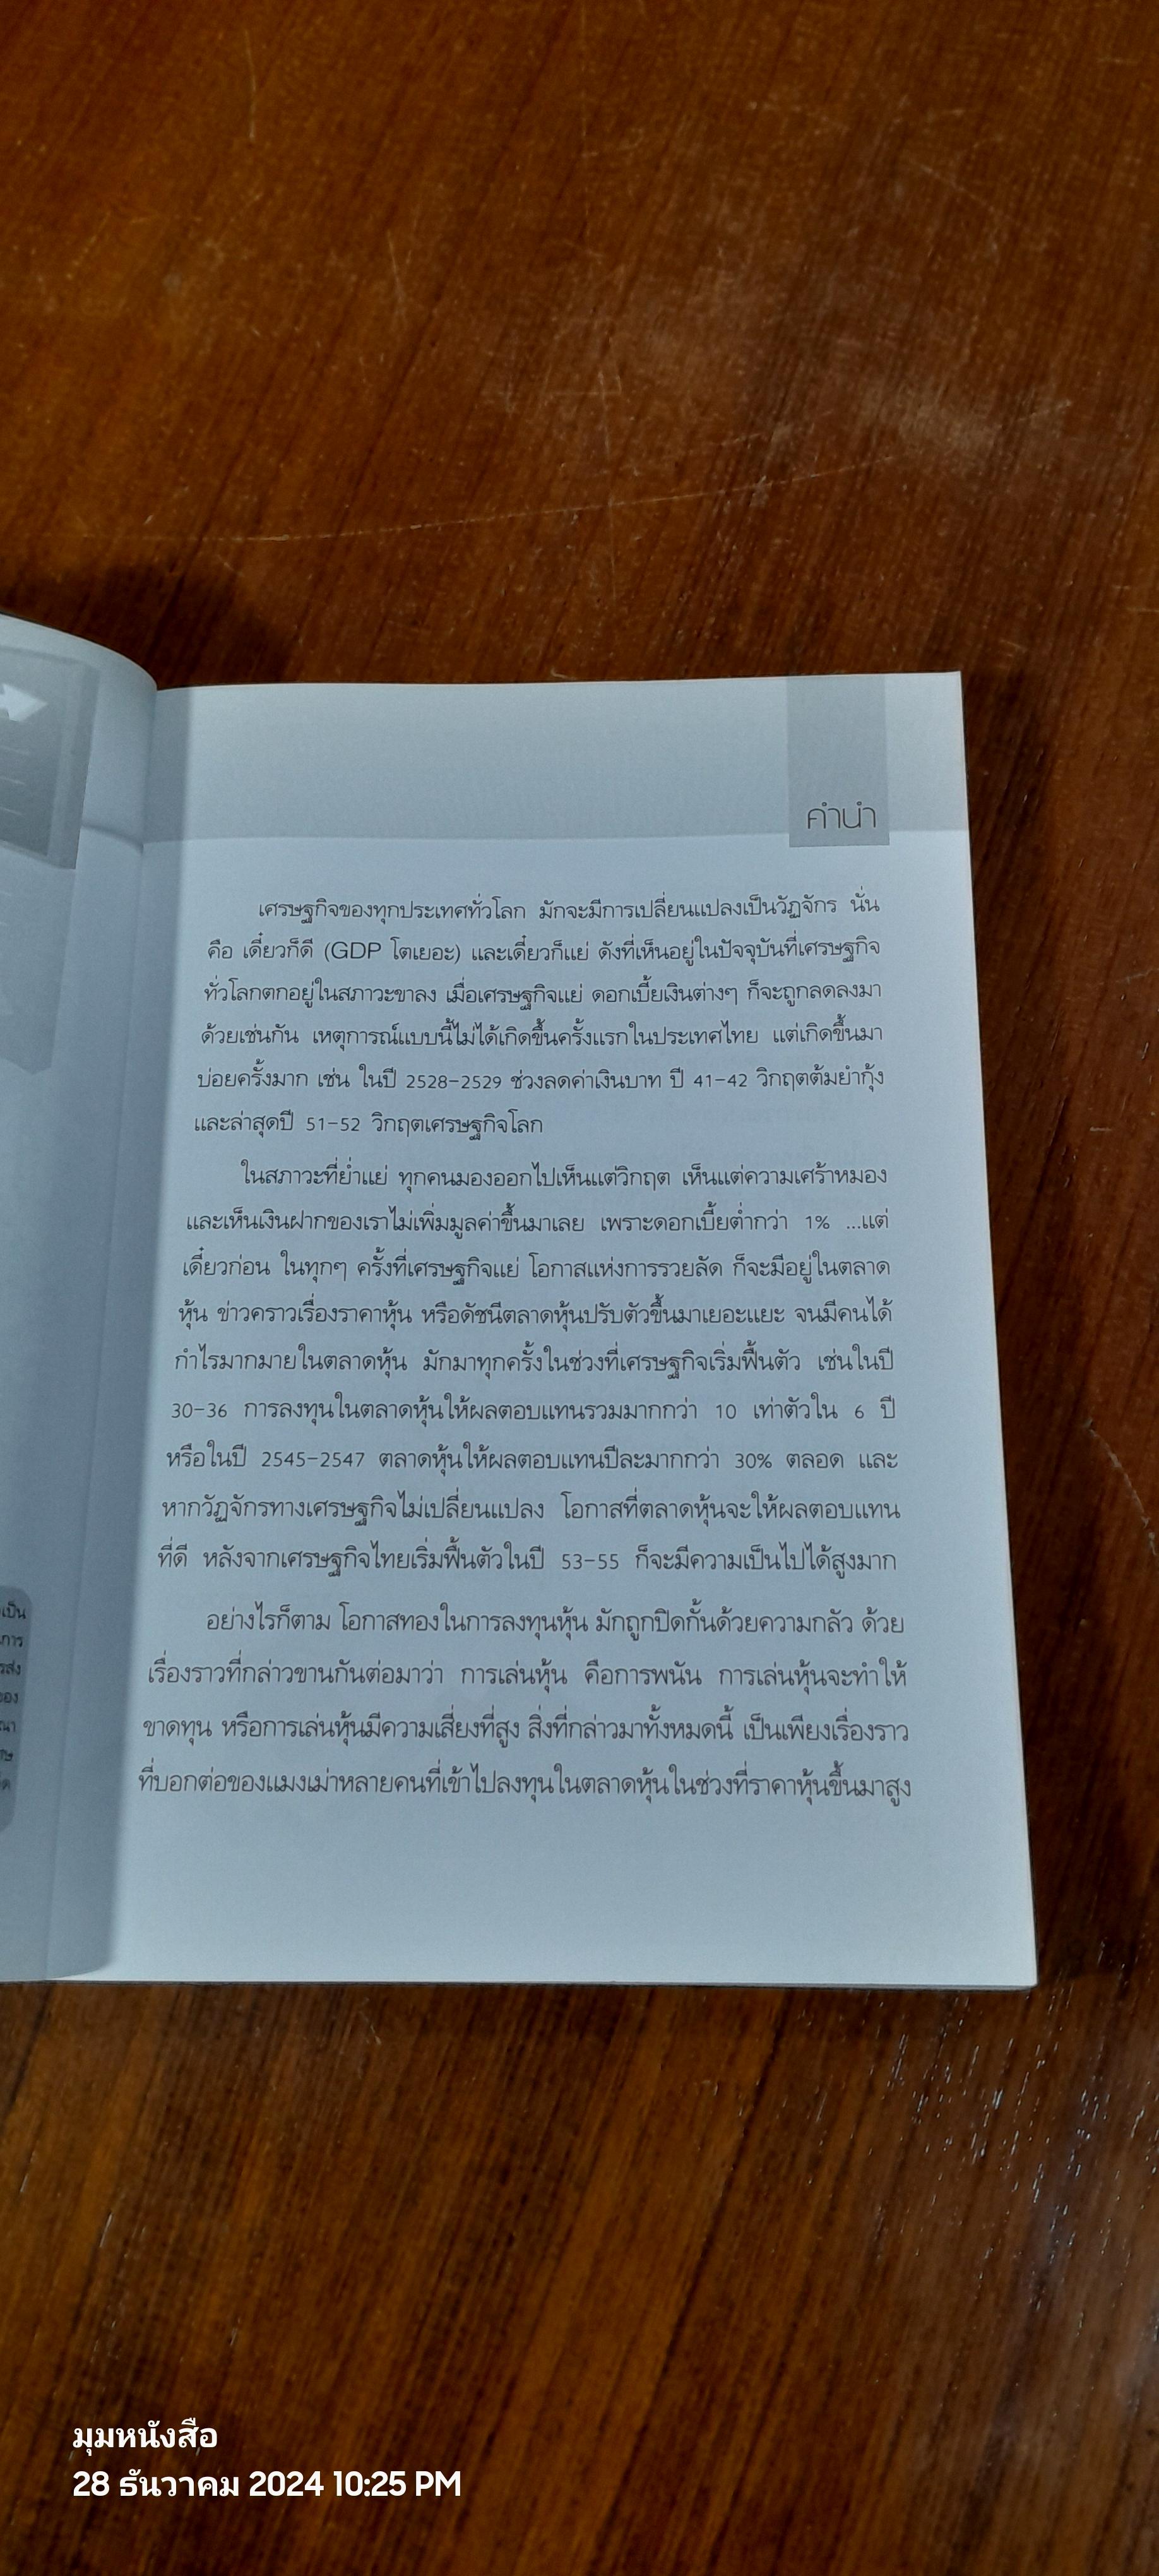 คำนำ
เศรษฐกิจของทุกประเทศทั่วโลก มักจะมีการเปลี่ยนแปลงเป็นวัฏจักร นั่น
คือ เดี๋ยวก็ดี (GDP โตเยอะ) และเดี๋ยวก็แย่ ดังที่เห็นอยู่ในปัจจุบันที่เศรษฐกิจ
ทั่วโลกตกอยู่ในสภาวะขาลง เมื่อเศรษฐกิจแย่ ดอกเบี้ยเงินต่างๆ ก็จะถูกลดลงมา
ด้วยเช่นกัน เหตุการณ์แบบนี้ไม่ได้เกิดขึ้นครั้งแรกในประเทศไทย แต่เกิดขึ้นมา
บ่อยครั้งมาก เช่น ในปี 2528-2529 ช่วงลดค่าเงินบาท ปี 41-42 วิกฤตต้มยำกุ้ง
และล่าสุดปี 51-52 วิกฤตเศรษฐกิจโลก
ในสภาวะที่ย่ำแย่ ทุกคนมองออกไปเห็นแต่วิกฤต เห็นแต่ความเศร้าหมอง
และเห็นเงินฝากของเราไม่เพิ่มมูลค่าขึ้นมาเลย เพราะดอกเบี้ยต่ำกว่า 1% ...แต่
เดี๋ยวก่อน ในทุกๆ ครั้งที่เศรษฐกิจแย่ โอกาสแห่งการรวยลัด ก็จะมีอยู่ในตลาด
หุ้น ข่าวคราวเรื่องราคาหุ้น หรือดัชนีตลาดหุ้นปรับตัวขึ้นมาเยอะแยะ จนมีคนได้
กำไรมากมายในตลาดหุ้น มักมาทุกครั้งในช่วงที่เศรษฐกิจเริ่มฟื้นตัว เช่นในปี
30-36 การลงทุนในตลาดหุ้นให้ผลตอบแทนรวมมากกว่า 10 เท่าตัวใน 6 ปี
หรือในปี 2545-2547 ตลาดหุ้นให้ผลตอบแทนปีละมากกว่า 30% ตลอด และ
หากวัฏจักรทางเศรษฐกิจไม่เปลี่ยนแปลง โอกาสที่ตลาดหุ้นจะให้ผลตอบแทน
ที่ดี หลังจากเศรษฐกิจไทยเริ่มฟื้นตัวในปี 53-55 ก็จะมีความเป็นไปได้สูงมาก
อย่างไรก็ตาม โอกาสทองในการลงทุนหุ้น มักถูกปิดกั้นด้วยความกลัว ด้วย
เรื่องราวที่กล่าวขานกันต่อมาว่า การเล่นหุ้น คือการพนัน การเล่นหุ้นจะทำให้
ขาดทุน หรือการเล่นหุ้นมีความเสี่ยงที่สูง สิ่งที่กล่าวมาทั้งหมดนี้ เป็นเพียงเรื่องราว
ที่บอกต่อของแมงเม่าหลายคนที่เข้าไปลงทุนในตลาดหุ้นในช่วงที่ราคาหุ้นขึ้นมาสูง
มุมหนังสือ
28 ธันวาคม 2024 10:25 PM